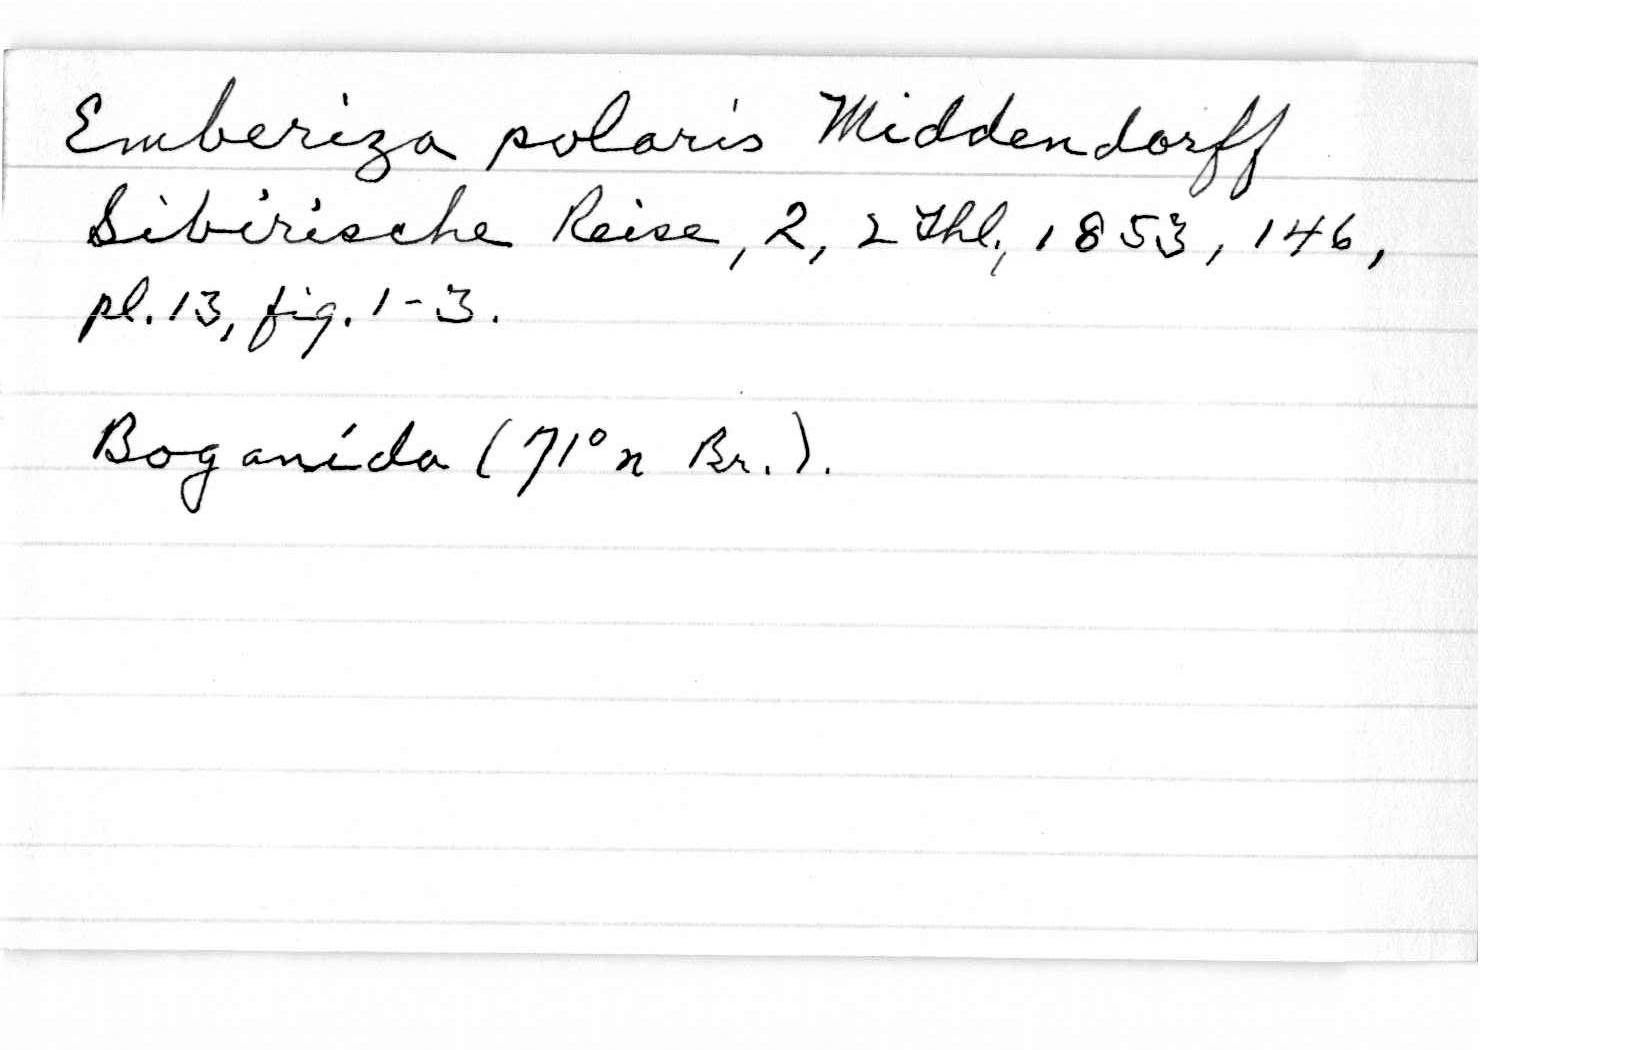 Emberiza polaris Middendorff
Sibirische Reise, 2, 2 Thl., 1853, 146,
pl. 13, fig. 1-3.
Boganída (71° n Br.).